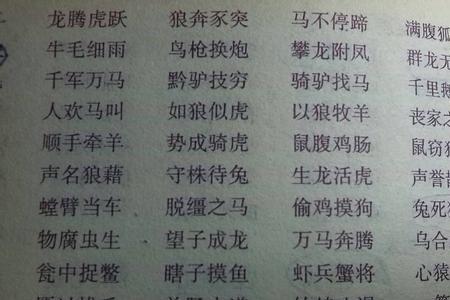 龙腾虎跃 狼奔豕突 马不停蹄 满腹狐
牛毛细雨 鸟枪换炮 攀龙附凤 群龙无
千军万马 黔驴技穷 骑驴找马 千里鹅
人欢马叫 如狼似虎 以狼牧羊 丧家之
顺手牵羊 势成骑虎 鼠腹鸡肠 鼠窃
声名狼藉 守株待兔 生龙活虎 声誉
螳臂当车 脱缰之马 偷鸡摸狗 兔死
物腐虫生 望子成龙 万马奔腾 乌合
瓮中捉鳖 瞎子摸鱼 虾兵蟹将 心猿